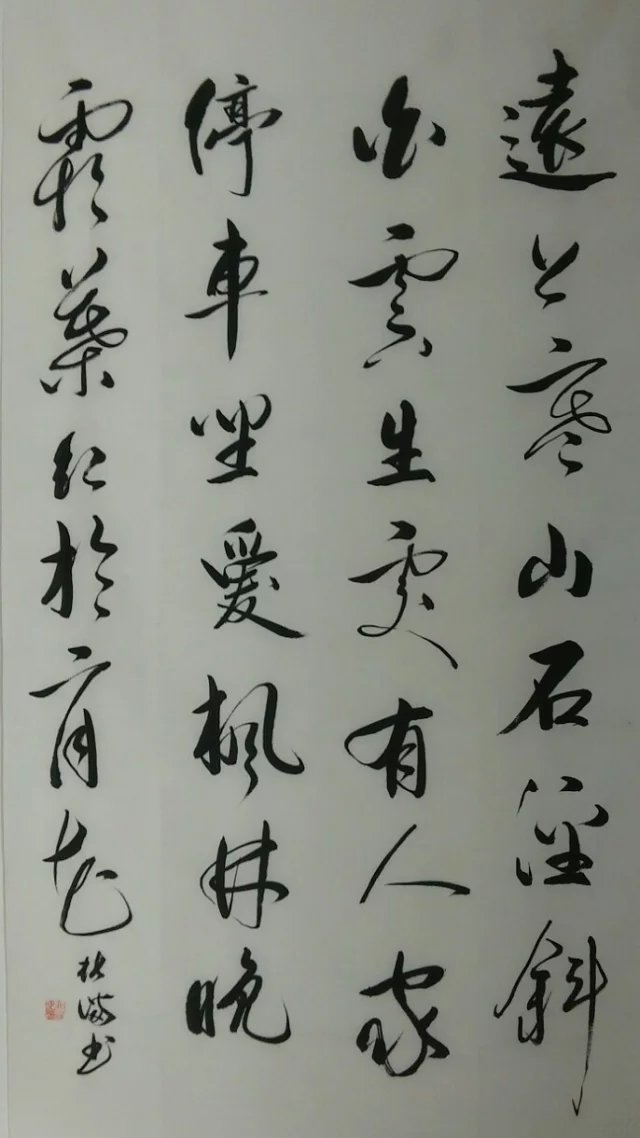 遠上寒山石径斜
白雲生處有人家
停車坐愛楓林晚
霜葉紅於二月花
書